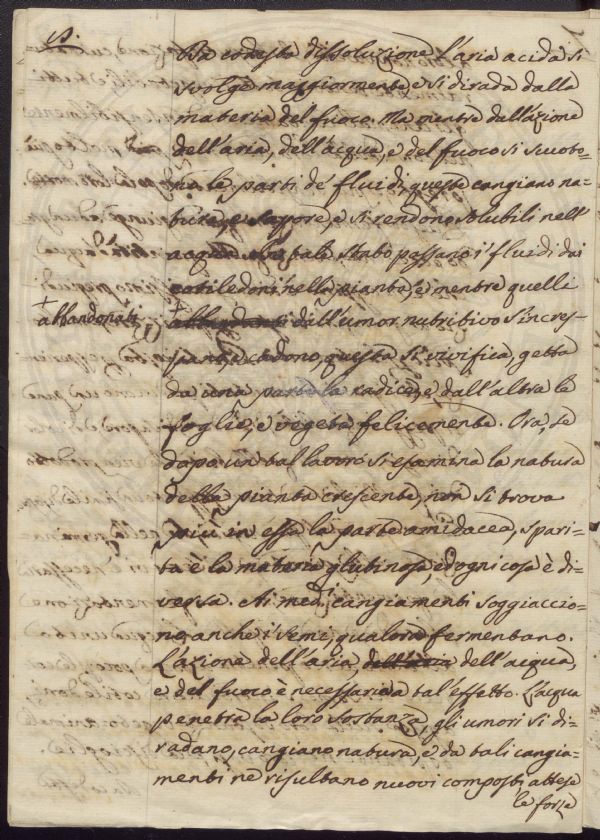 Da codesta dissoluzione l'aria acida si
svolge maggiormente, e si dirada dalla
materia del fuoco. Ma mentre dall'azione
dell'aria, dell'acqua, e del fuoco si scuoto-
no le parti de' fluidi, queste cangiano na-
tura, e sapore, e si rendono solubili nell'
acqua. In tale stato passano i fluidi dai
cotiledoni nella pianta, e mentre quelli
+ abbandonati (1) + dall'umor nutritivo s'incres-
pano, e cedono, questa si vivifica, getta
da una parte la radice, e dall'altra le
foglie, e vegeta felicemente. Ora, se
dopo un tal lavoro si esamina la natura
della pianta crescente, non si trova
più in essa la parte amidacea, spari-
ta è la materia glutinosa, ed ogni cosa è di-
versa. Ai med.i cangiamenti soggiaccio-
no, anche i semi, qualora fermentano.
L'azione dell'aria, dell'aria dell'acqua,
e del fuoco è necessaria a tal'effetto. L'acqua
penetra la loro sostanza, gli umori si di-
radano, cangiano natura, e da tali cangia-
menti ne risultano nuovi composti attese
le forze